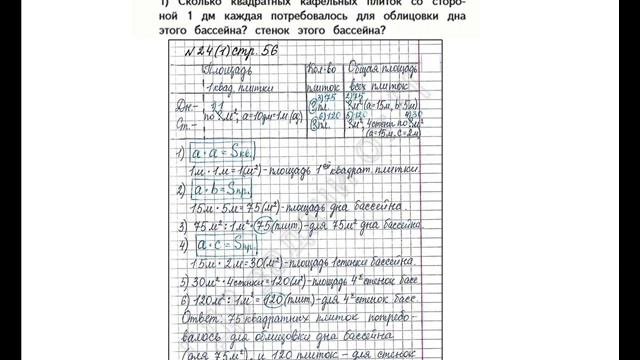 1) Сколько квадратных кафельных плиток со сторо-
ной 1 дм каждая потребовалось для облицовки дна
этого бассейна? стенок этого бассейна?
№24(1)стр. 56
Площадь Кол-во Общая площадь
1 квад. плитки плиток всех плиток
3)75 2)75
Дн.- 1)1 ?пл. ?м²(a=15м, b=5м)
по ?м², a=10дм=1м (a) 6)120 5)120 4)30
Ст.- ?пл. ?м², 4 стенки по ?м²
(a=15м, c=2м)
1) a·a=Sкв.
1м·1м=1(м²)-площадь 1ой квадрат. плитки
2) a·b=Sпр.
15м·5м=75(м²)-площадь дна бассейна.
3) 75м²:1м²=75(плит)-для 75м² дна бассейна.
4) a·c=Sпр.
15м·2м=30(м²)-площадь 1 стенки бассейна.
5) 30м²·4стенки=120(м²)-площадь 4х стенок басс.
6) 120м²:1м²=120(плит)-для 4х стенок басс.
Ответ: 75 квадратных плиток потребо-
валось для облицовки дна бассейна
(для 75м²), и 120 плиток - для стенок